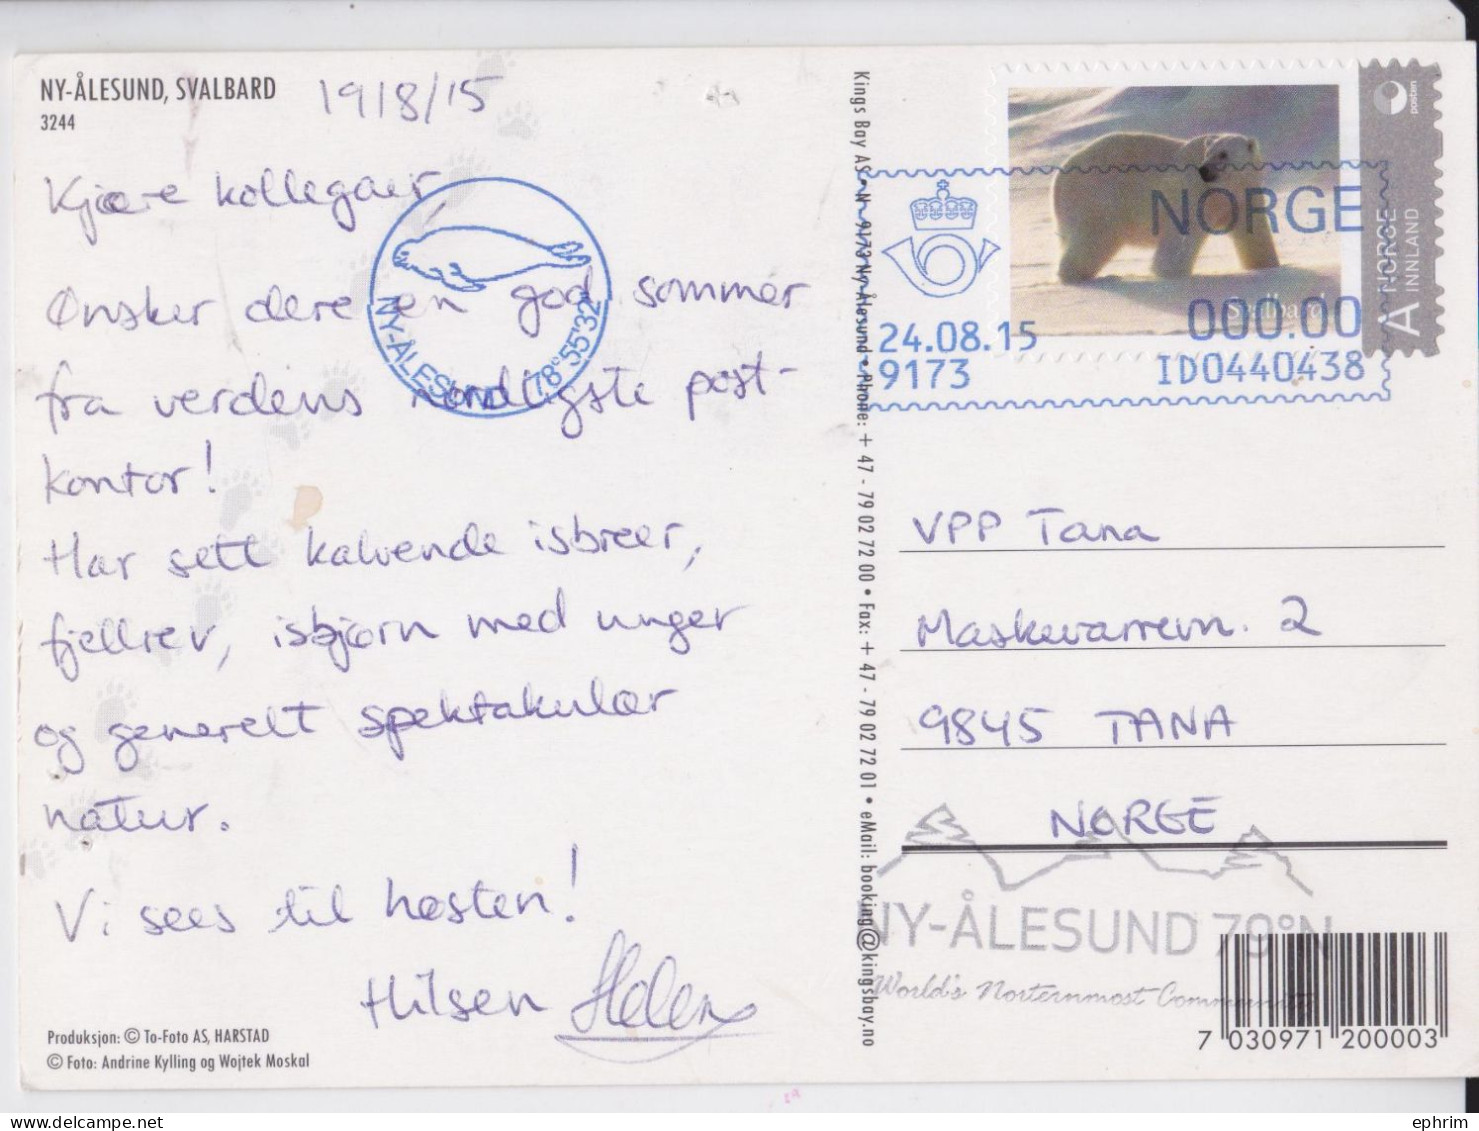 NY-ÅLESUND, SVALBARD
3244
19/8/15
Kjære kollegaer,
Ønsker dere en god sommer
fra verdens nordligste post-
kontor!
Har sett kalvende isbreer,
fjellrev, isbjørn med unger
og generelt spektakulær
natur.
Vi sees til høsten!
Hilsen Helen
Produksjon: © To-Foto AS, HARSTAD
© Foto: Andrine Kylling og Wojtek Moskal
NY-ÅLESUND 78°55'32
Kings Bay AS • N - 9173 Ny Ålesund • Phone: + 47 - 79 02 72 00 • Fax: + 47 - 79 02 72 01 • eMail: booking@kingsbay.no
posten
NORGE
INNLAND
A
Svalbard
NORGE
000.00
24.08.15
9173
ID0440438
VPP Tana
Maskevarrevn. 2
9845 TANA
NORGE
NY-ÅLESUND 79°N
World's Norternmost Community
7 030971 200003
delcampe.net
ephrim